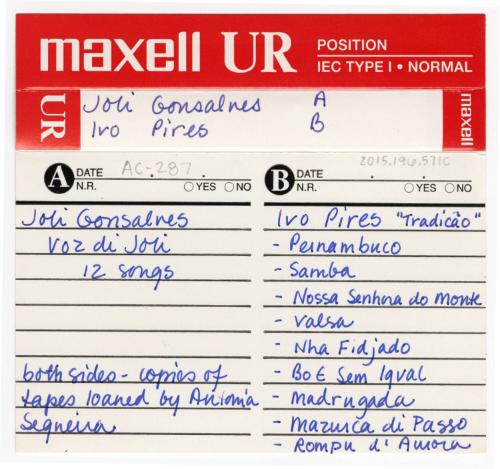 maxell UR
POSITION
IEC TYPE I • NORMAL
UR
Joli Gonsalves A
Ivo Pires B
maxell
A DATE AC-287
N.R. YES NO
Joli Gonsalves
Voz di Joli
12 songs
both sides - copies of
tapes loaned by Antonia
Sequeira
B DATE 2015.196.571c
N.R. YES NO
Ivo Pires "Tradicão"
- Pernambuco
- Samba
- Nossa Senhna do Monte
- Valsa
- Nha Fidjado
- Bo E Sem Igval
- Madrugada
- Mazurca di Passo
- Rompu d' Amora